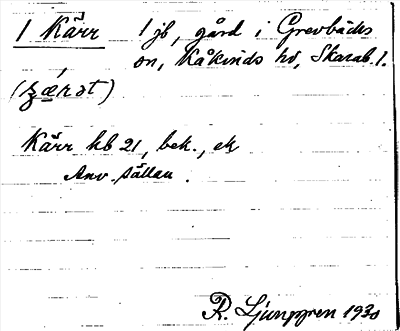 1 Kärr 1 jb, gård i Grevbäcks
sn, Kåkinds hd, Skarab. l.
Kärr hb 21, bek., ek
Anv. sällan.
R. Ljunggren 1930